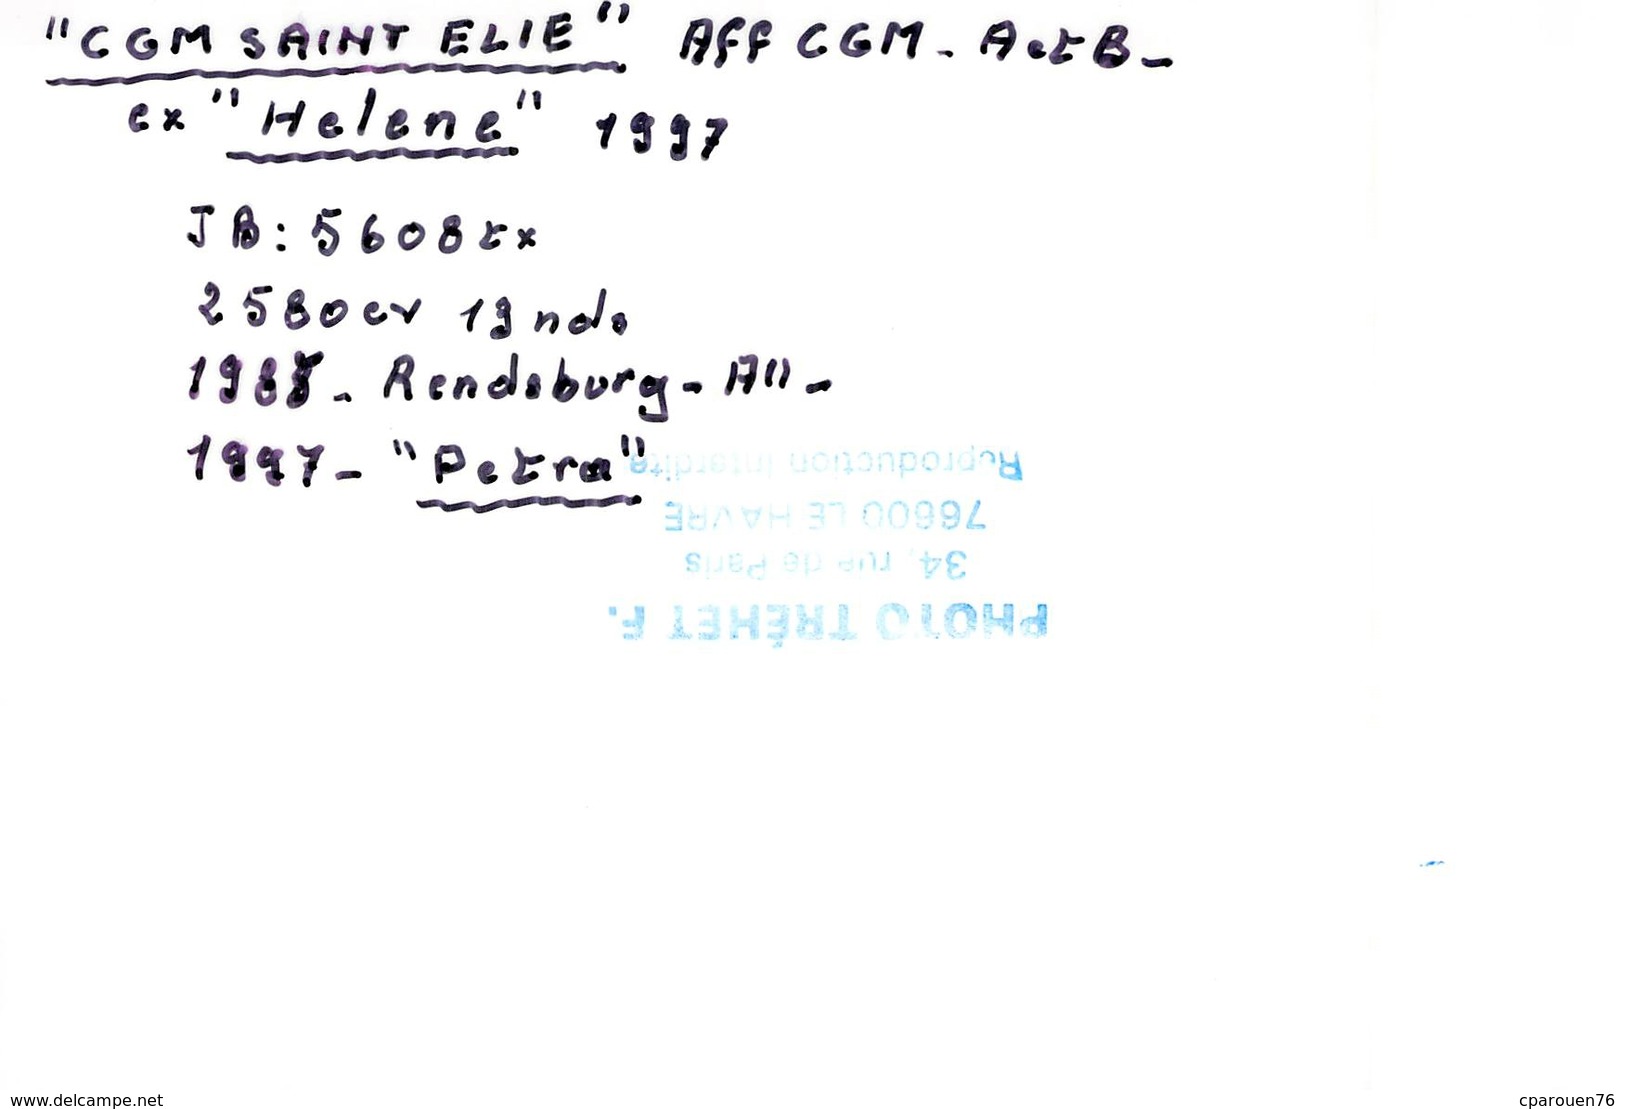 "CGM SAINT ELIE" Aff CGM - A et B -
ex "Helene" 1997
JB: 5608 tx
2580 cv 13 nds
1985 - Rendsburg - All -
1997 - "Petra"
PHOTO TRÉHET F.
34, rue de Paris
76600 LE HAVRE
Reproduction interdite
www.delcampe.net
cparouen76